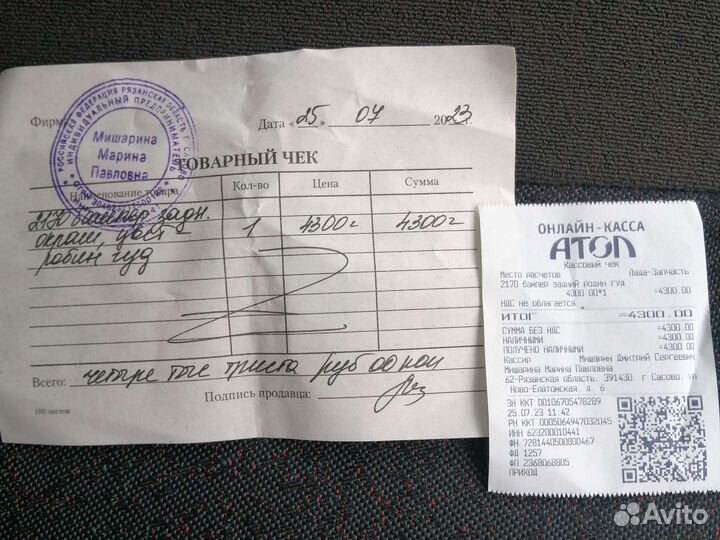 РОССИЙСКАЯ ФЕДЕРАЦИЯ РЯЗАНСКАЯ ОБЛАСТЬ Г. САСОВО
ИНДИВИДУАЛЬНЫЙ ПРЕДПРИНИМАТЕЛЬ
Мишарина
Марина
Павловна
Фирма
Дата «25» 07 2023 г.
ТОВАРНЫЙ ЧЕК
Наименование товара Кол-во Цена Сумма
бампер задн. 1 4300= 4300=
робин гуд
Всего: четыре тыс триста руб 00 коп
Подпись продавца:
100 листов
ОНЛАЙН-КАССА
АТОЛ
Кассовый чек
Место расчетов Лада-Запчасть
2170 бампер задний родин гуд
4300.00*1 =4300.00
НДС не облагается
ИТОГ =4300.00
СУММА БЕЗ НДС =4300.00
НАЛИЧНЫМИ =4300.00
ПОЛУЧЕНО НАЛИЧНЫМИ =4300.00
Кассир Мишарин Дмитрий Сергеевич
Мишарина Марина Павловна
62-Рязанская область. 391430. г Сасово. ул
Ново-Елатомская. д. 6
ЗН ККТ 00106705478289
25.07.23 11:42
РН ККТ 0005064947032045
ИНН 623200010441
ФН 7281440500800467
ФД 1257
ФП 2368068805
ПРИХОД
Avito